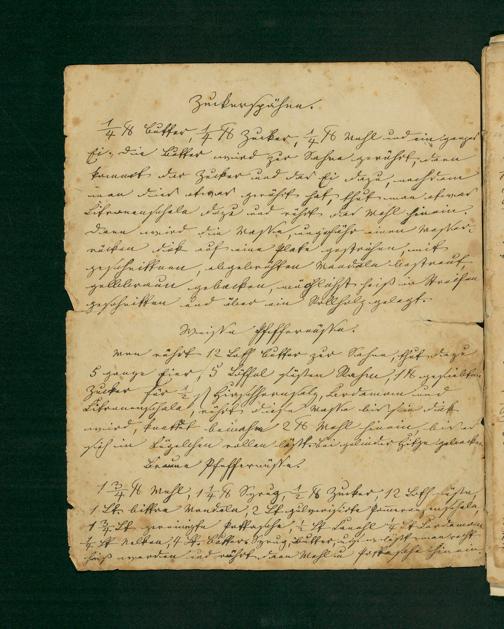 Zuckerspähne.
1/4 ℔ Butter, 1/4 ℔ Zucker, 1/4 ℔ Mehl und ein ganzes
Ei, die Butter wird zur Sahne gerührt, dann
kommt der Zucker und das Ei dazu, nachdem
man dies etwas gerührt hat, thut man etwas
Citronenschale dazu und rührt das Mehl hinein
dann wird die Masse, ungefähr einen Messer-
rücken dick auf eine Platte gestrichen, mit
geschnittnen, abgebrühten Mandeln bestreut,
gelbbraun gebacken, heiß in Streifen
geschnitten und über ein Rollholz gelegt.
Weisse Pfeffernüsse.
Man rührt 12 Loth Butter zur Sahne, thut dazu
5 ganze Eier, 5 Löffel süßen Rahm, 1 ℔ gesiebten
Zucker für Hirschhornsalz, Cardamom und
Citronenschale, rührt diese Masse bis sie dick
wird, knetet beinahe 2 ℔ Mehl hinein, bis er
sich in Kügelchen rollen läßt, bei gelinder Hitze gebacken
Braune Pfeffernüsse.
1 3/4 ℔ Mehl, 1 1/4 ℔ Syrup, 1/2 ℔ Zucker, 12 Loth süße,
1 Lt. bittre Mandeln, 2 Lt. Pomeranzenschale,
1 3/4 Lt. gereinigte Pottasche, 1/2 Lt. Canehl Cardamom
1/2 Lt. Nelken, 4 Lt. Butter. Syrup, Butter, läßt man recht
heiß werden und rührt dann Mehl u. Pottasche hinein